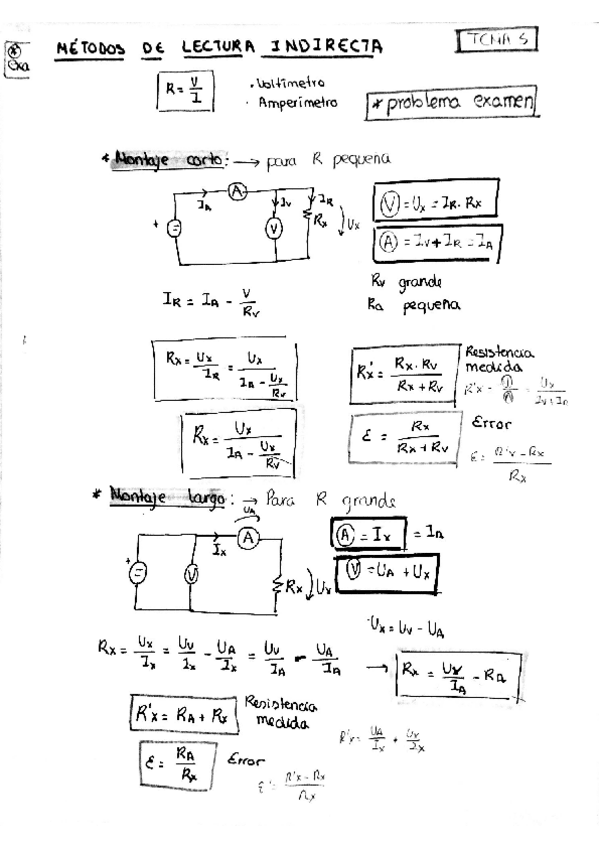 MÉTODOS DE LECTURA INDIRECTA
TEMA 5
R = V/I
· Voltímetro
· Amperímetro
* problema examen
* Montaje corto: → para R pequeña
A
I_A
I_V
I_R
V
R_x
U_x
+
V = U_x = I_R · R_x
A = I_V + I_R = I_A
R_V grande
R_A pequeña
I_R = I_A - V/R_V
R_x = U_x/I_R = U_x/(I_A - U_x/R_V)
R_x = U_x/(I_A - U_x/R_V)
R'_x = (R_x · R_V)/(R_x + R_V)
Resistencia
medida
ε = R_x/(R_x + R_V)
Error
* Montaje largo: → Para R grande
U_A
A
I_x
V
R_x
U_x
+
A = I_x = I_A
V = U_A + U_x
U_x = U_V - U_A
R_x = U_x/I_x = U_V/I_x - U_A/I_x = U_V/I_A - U_A/I_A → R_x = U_V/I_A - R_A
R'_x = R_A + R_x
Resistencia
medida
R'_x = U_A/I_x + U_x/I_x
ε = R_A/R_x
Error
ε = (R'_x - R_x)/R_x